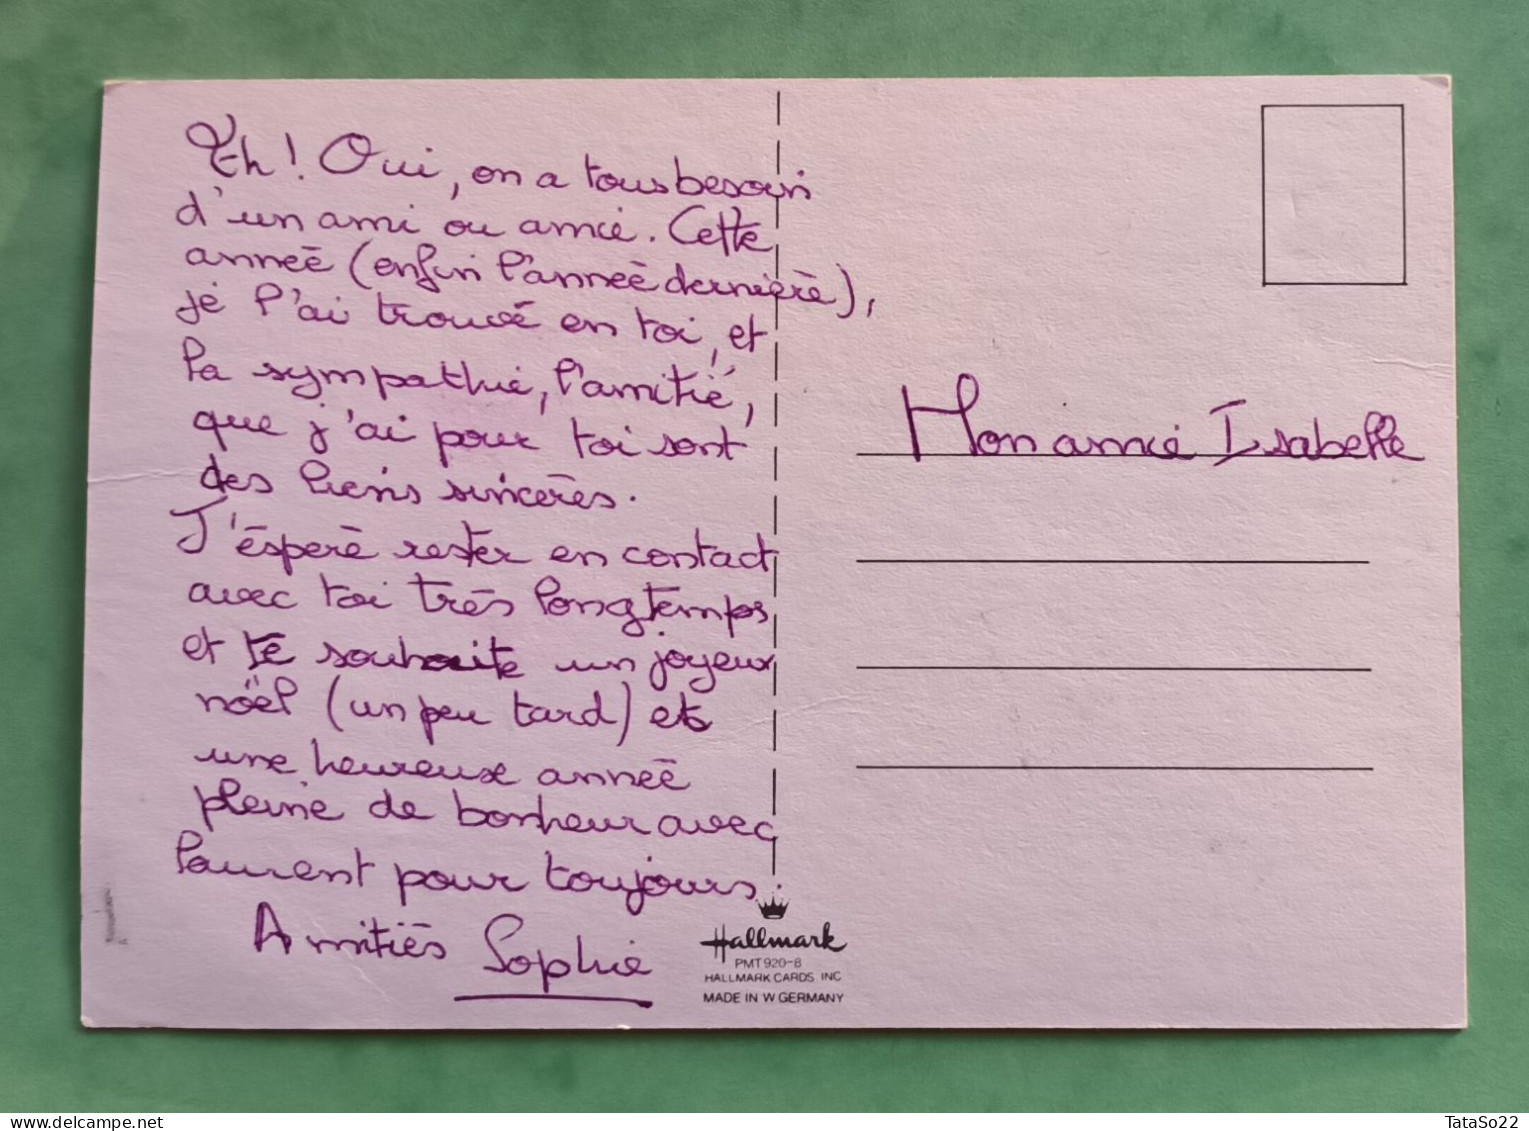 Eh! Oui, on a tous besoin
d'un ami ou amie. Cette
année (enfin l'année dernière),
je l'ai trouvé en toi, et
la sympathie, l'amitié,
que j'ai pour toi sont
des liens sincères.
J'éspère rester en contact
avec toi très longtemps
et te souhaite un joyeux
noël (un peu tard) et
une heureuse année
pleine de bonheur avec
Laurent pour toujours.
Amitiés Sophie
Mon amie Isabelle
Hallmark
PMT 920-8
HALLMARK CARDS INC
MADE IN W GERMANY
TataSo22